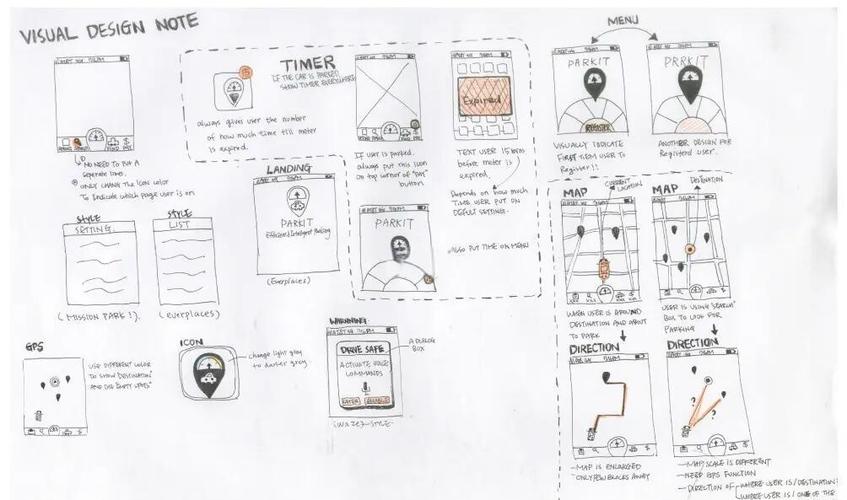 VISUAL DESIGN NOTE
NO NEED TO PUT A
Seperate lines.
ONLY CHANGE The Icon color
To Indicate which page user is on
TIMER
IF THE CAR IS PARKED
SHOW TIMER EVERYWHERE
15
always gives user the number
of how much time till meter
is expired.
IF user is parked.
always put this icon
on top corner of "PAY"
button
Expired
TEXT USER 15 mins
before meter is
expired.
Depends on how much
TIME USER PUT ON
DEFAULT SETTING.
PARKIT
ALSO PUT TIME ON MENU
LANDING
PARKIT
Efficient Intelligent Parking
(Everplaces)
STYLE
SETTING
(MISSION PARK!!).
STYLE
LIST
(everplaces)
GPS
USE DIFFERENT COLOR
TO SHOW DESTINATION
AND
ICON
change light gray
to darker gray.
WARNING
DRIVE SAFE
ACTIVATE VOICE
COMMANDS
LATER
A DIALOG
BOX
MENU
PARKIT
REGISTER
VISUALLY INDICATE
FIRST TIEM USER TO
Register!!
PARKIT
ANOTHER DESIGN FOR
Registerd user.
MAP
CURRENT
LOCATION
WHEN USER IS AROUND
DESTINATION AND ABOUT
TO PARK
MAP
DESTINATION
USER IS USING "SEARCH"
BOX TO LOOK FOR
PARKING
DIRECTION
MAP IS ENLARGED
ONLY FEW BLOCKS AWAY
DIRECTION
? ?
MAP SCALE IS DIFFERENT
NEED GPS FUNCTION
DIRECTION OF WHERE USER IS / DESTINATION
WHERE USER IS / ONE OF THE